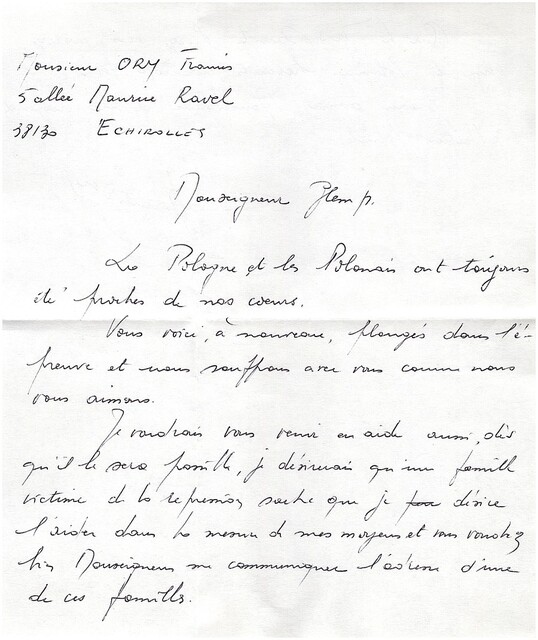 Monsieur ORY Francis
5 allée Maurice Ravel
38130 ECHIROLLES
Monseigneur Glemp.
La Pologne et les Polonais ont toujours
été proches de nos coeurs.
Vous voici, à nouveau, plongés dans l'é-
preuve et nous souffrons avec vous comme nous
vous aimons.
Je voudrais vous venir en aide aussi, dès
qu'il le sera possible, je désirerais qu'une famille
victime de la repression sache que je désire
l'aider dans la mesure de mes moyens et vous voudrez
bien Monseigneur me communiquer l'adresse d'une
de ces familles.